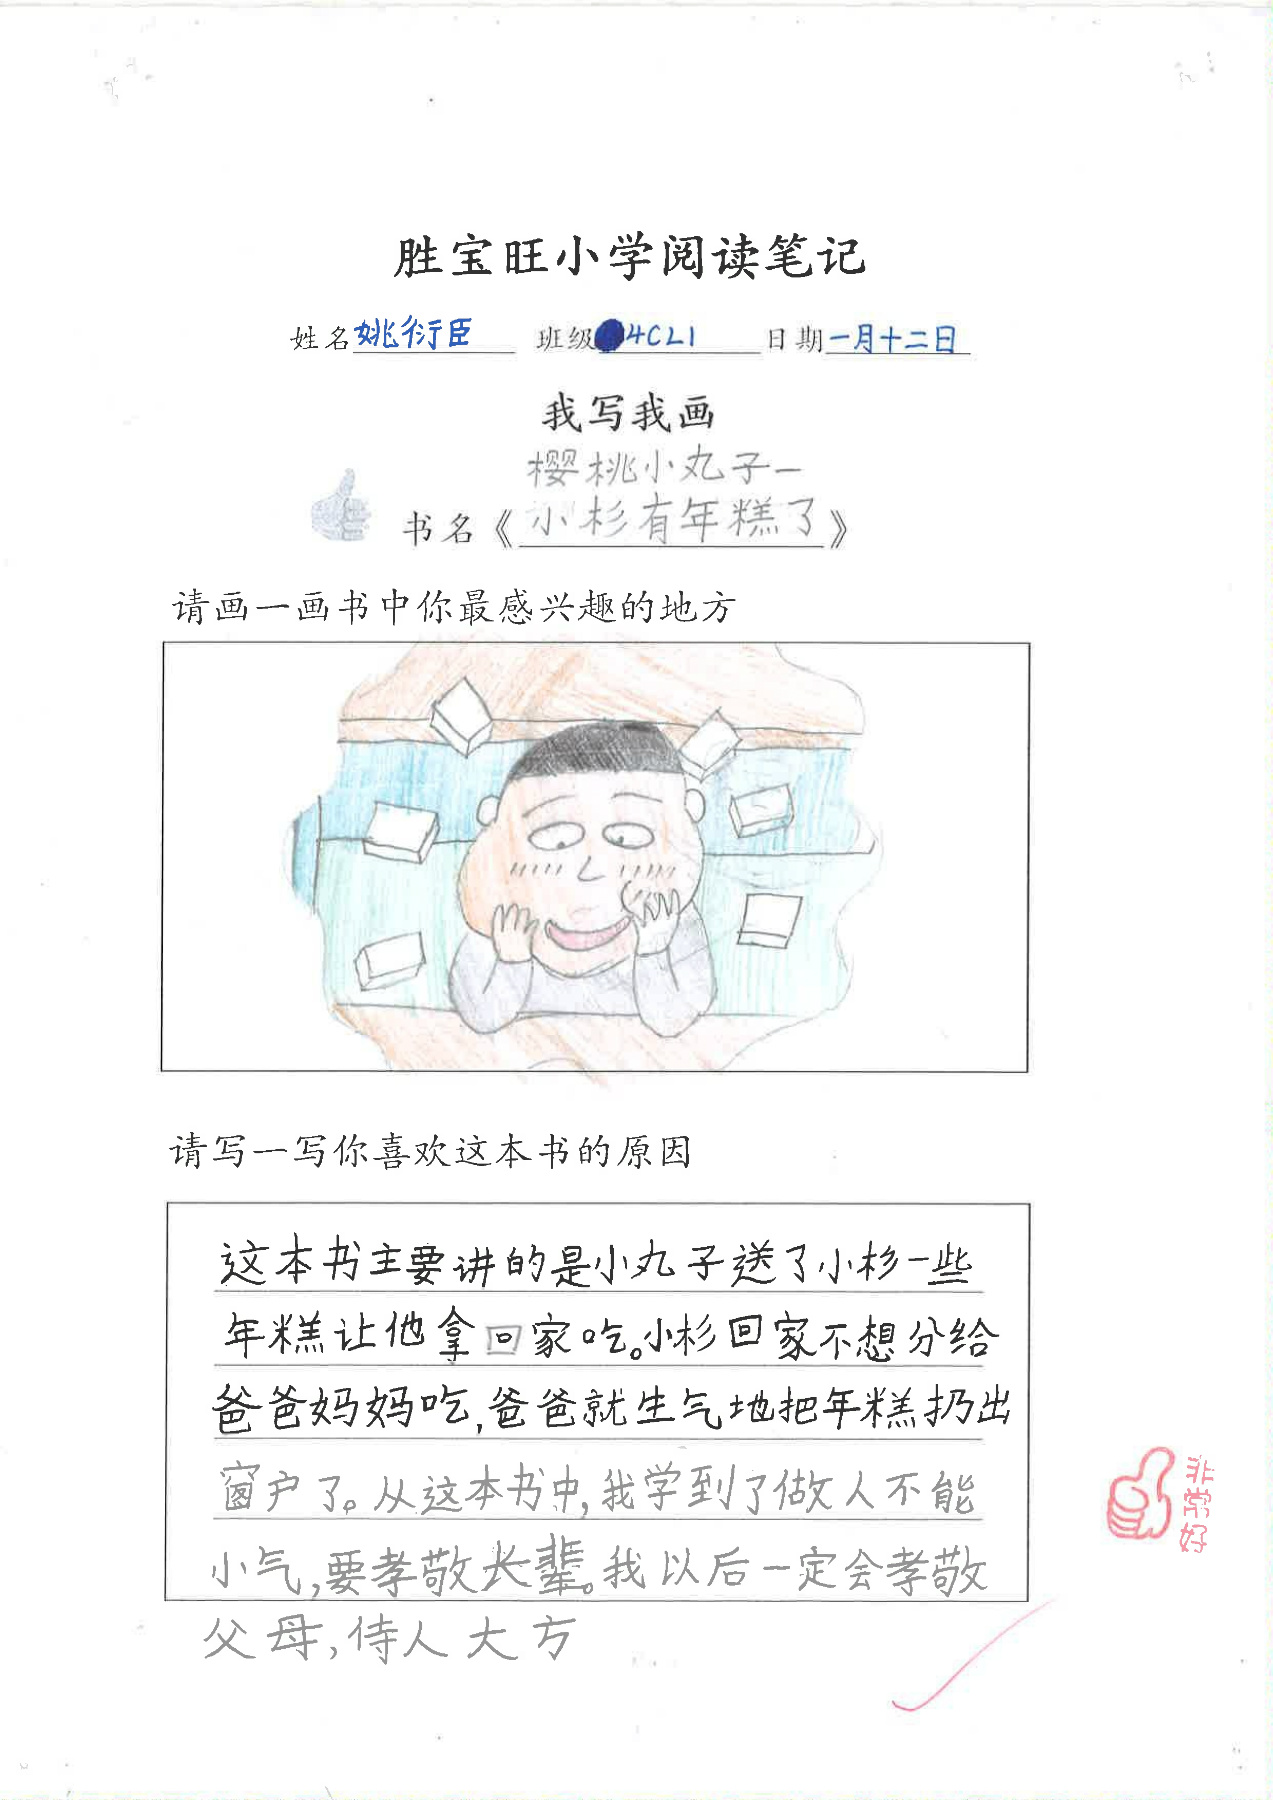 胜宝旺小学阅读笔记
姓名姚衍臣 班级4CL1 日期一月十二日
我写我画
樱桃小丸子一
书名《小杉有年糕了》
请画一画书中你最感兴趣的地方
请写一写你喜欢这本书的原因
这本书主要讲的是小丸子送了小杉一些
年糕让他拿回家吃。小杉回家不想分给
爸爸妈妈吃,爸爸就生气地把年糕扔出
窗户了。从这本书中,我学到了做人不能
小气,要孝敬长辈。我以后一定会孝敬
父母,待人大方
非常好